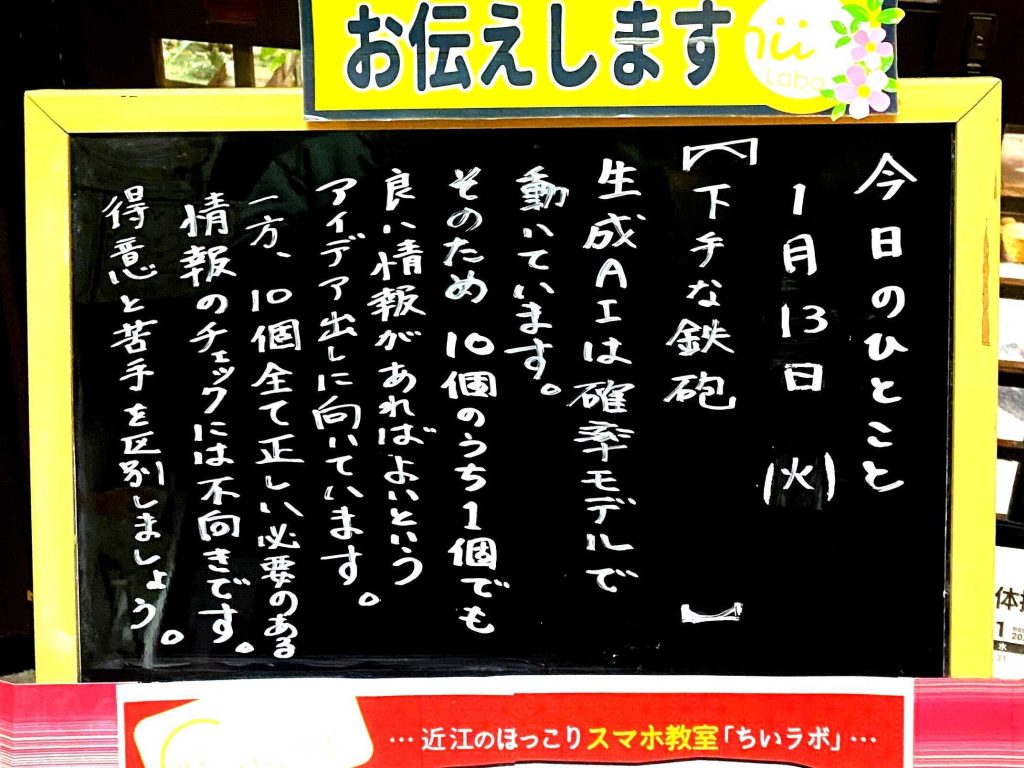 お伝えします
ii
Labo
今日のひとこと
1月13日 (火)
【下手な鉄砲】
生成AIは確率モデルで
動いています。
そのため10個のうち1個でも
良い情報があればよいという
アイデア出しに向いています。
一方、10個全て正しい必要のある
情報のチェックには不向きです。
得意と苦手を区別しましょう。
…近江のほっこりスマホ教室「ちいラボ」…
1
水
31